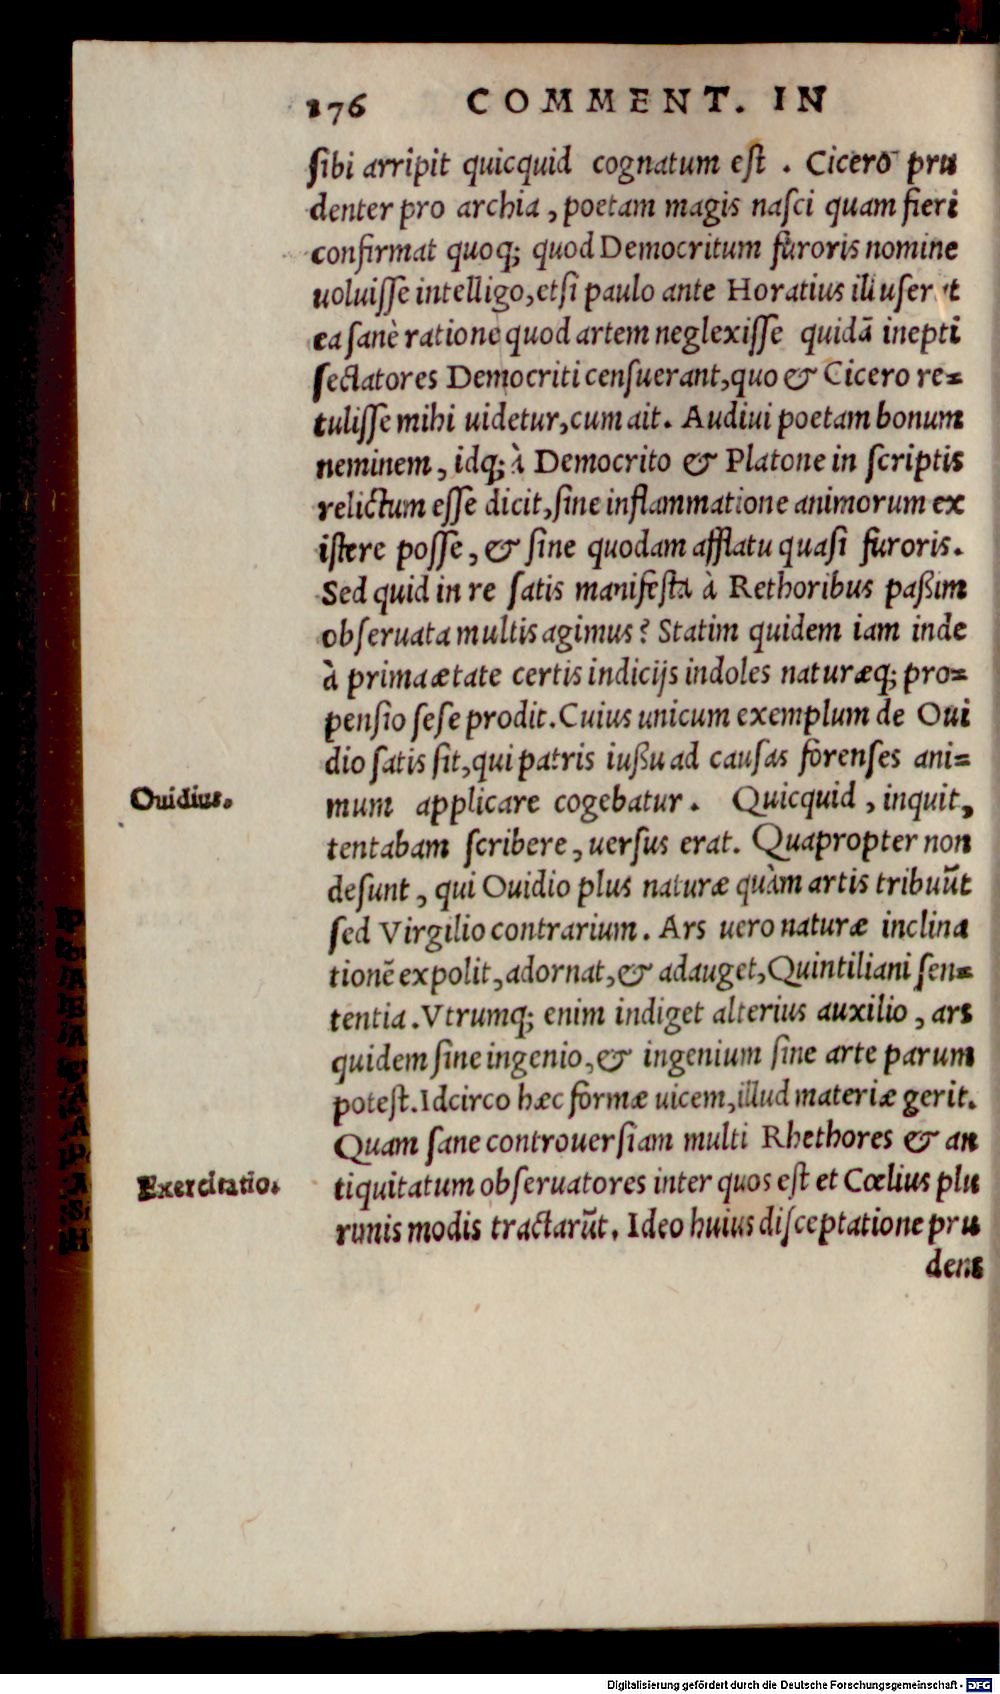 176 COMMENT. IN
sibi arripit quicquid cognatum est . Cicero pru
denter pro archia , poetam magis nasci quam fieri
confirmat quoq; quod Democritum furoris nomine
uoluisse intelligo, etsi paulo ante Horatius illuserit
ea sanè ratione quod artem neglexisse quidã inepti
sectatores Democriti censuerant, quo & Cicero re-
tulisse mihi uidetur, cum ait. Audiui poetam bonum
neminem, idq; à Democrito & Platone in scriptis
relictum esse dicit, sine inflammatione animorum ex
istere posse, & sine quodam afflatu quasi furoris.
Sed quid in re satis manifesta à Rethoribus paßim
obseruata multis agimus? Statim quidem iam inde
à prima ætate certis indicijs indoles naturæq; pro-
pensio sese prodit. Cuius unicum exemplum de Oui
dio satis sit, qui patris iußu ad causas forenses ani-
Ouidius.
mum applicare cogebatur. Quicquid, inquit,
tentabam scribere, uersus erat. Quapropter non
desunt, qui Ouidio plus naturæ quàm artis tribuũt
sed Virgilio contrarium. Ars uero naturæ inclina
tionẽ expolit, adornat, & adauget, Quintiliani sen-
tentia. Vtrumq; enim indiget alterius auxilio, ars
quidem sine ingenio, & ingenium sine arte parum
potest. Idcirco hæc formæ uicem, illud materiæ gerit.
Quam sane controuersiam multi Rhethores & an
Exercitatio.
tiquitatum obseruatores inter quos est et Cœlius plu
rimis modis tractarũt. Ideo huius disceptatione pru
dens
Digitalisierung gefördert durch die Deutsche Forschungsgemeinschaft - DFG